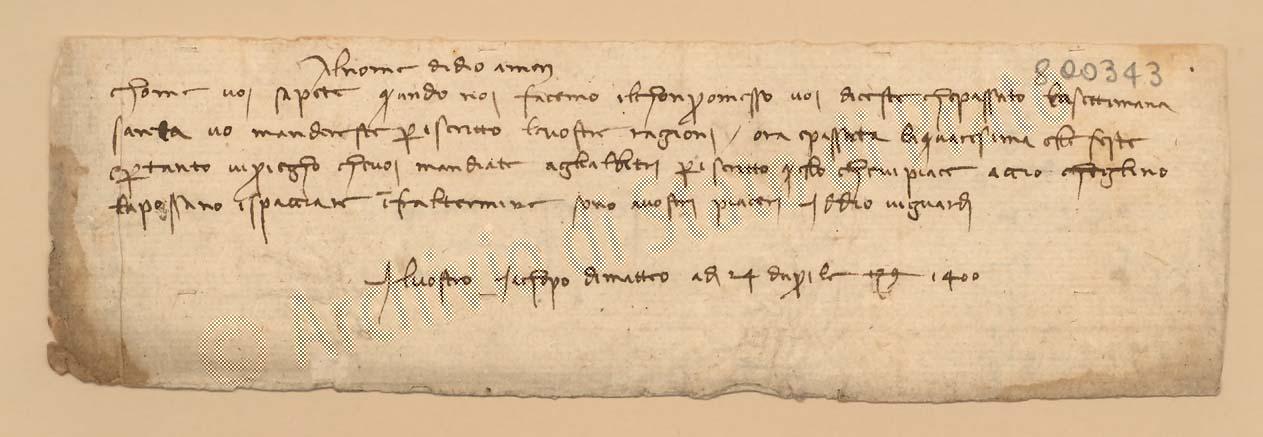 Al nome di dio amen
800343
chome voi sapete quando noi facemo il chonpromesso voi diceste che passato la settimana
santa vo mandereste per iscritto le vostre ragioni / ora e passata la quaresima e le feste
e per tanto vi priegho che voi mandiate agl albitri per iscritto quello che vi piace accio che eglino
la possano ispacciare infra l termine sono a vostri piaceri iddio vi guardi
Il vostro Jachopo di matteo a di 24 d aprile 1400
© Archivio di Stato di Prato